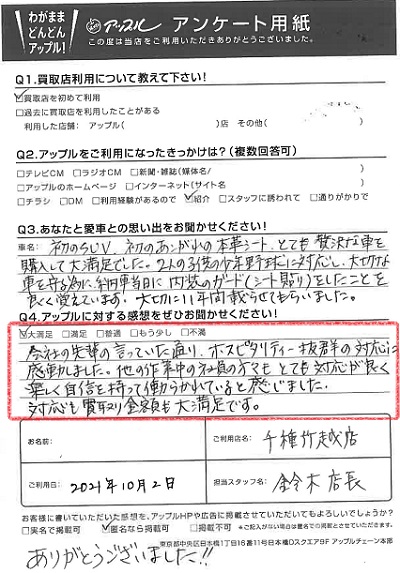 わがまま
どんどん
アップル!
アップル アンケート用紙
この度は当店をご利用いただきありがとうございました。
Q1.買取店利用について教えて下さい!
☑買取店を初めて利用
□過去に買取店を利用したことがある
利用した店舗: アップル( )店 その他( )
Q2.アップルをご利用になったきっかけは?(複数回答可)
□テレビCM □ラジオCM □新聞・雑誌(媒体名/ )
□アップルのホームページ □インターネット(サイト名 )
□チラシ □DM □利用経験があるので ☑紹介 □スタッフに誘われて □通りがかりで
Q3.あなたと愛車との思い出をお聞かせください!
車名: 初のらしV、初のあこがれの本革シート、とても贅沢な車を
購入して大満足でした。2人の子供の少年野球に対応し、大切な
車を守る為に、納車当日に内装のガード(シート貼り)をしたことを
良く覚えています。大切に11年間載らせてもらいました。
Q4.アップルに対する感想をぜひお聞かせください!
☑大満足 □満足 □普通 □もう少し □不満
会社の先輩の言っていた通り、ホスピタリティー抜群の対応に
感動しました。他の作業中の社員の方々もとても対応が良く
楽しく自信を持って働らかれていると感じました。
対応も買取り金額も大満足です。
お名前:
ご利用店名: 千種竹越店
ご利用日: 2021年10月2日
担当スタッフ名: 鈴木店長
お客様に書いていただいた感想を、アップルHPや広告に掲載させていただいてもよろしいでしょうか?
□実名で掲載可 ☑匿名なら掲載可 □掲載不可 *ご記入がない場合は匿名での掲載とさせていただきます。
東京都中央区日本橋1丁目16番11号日本橋Dスクエア9F アップルチェーン本部
ありがとうございました!!